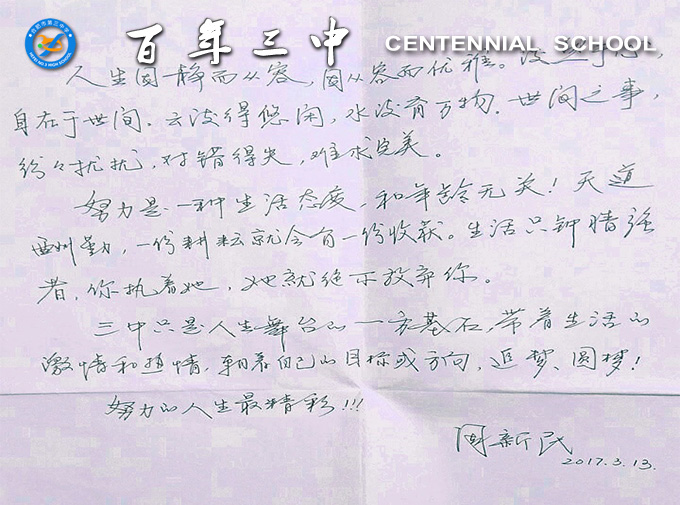 百年三中 CENTENNIAL SCHOOL
人生因静而从容，因从容而优雅。
身在于世间．云淡得悠闲，水淡育万物．世间之事，
纷々扰扰，对错得失，难求完美。
努力是一种生活态度，和年龄无关！天道
酬勤，一份耕耘就会有一份收获。生活只钟情强
者，你执着她，她就绝不放弃你。
三中只是人生舞台的一方基石，带着生活的
激情和热情，朝着自己的目标或方向，追梦、圆梦！
努力的人生最精彩！！！
周新民
2017.3.13.